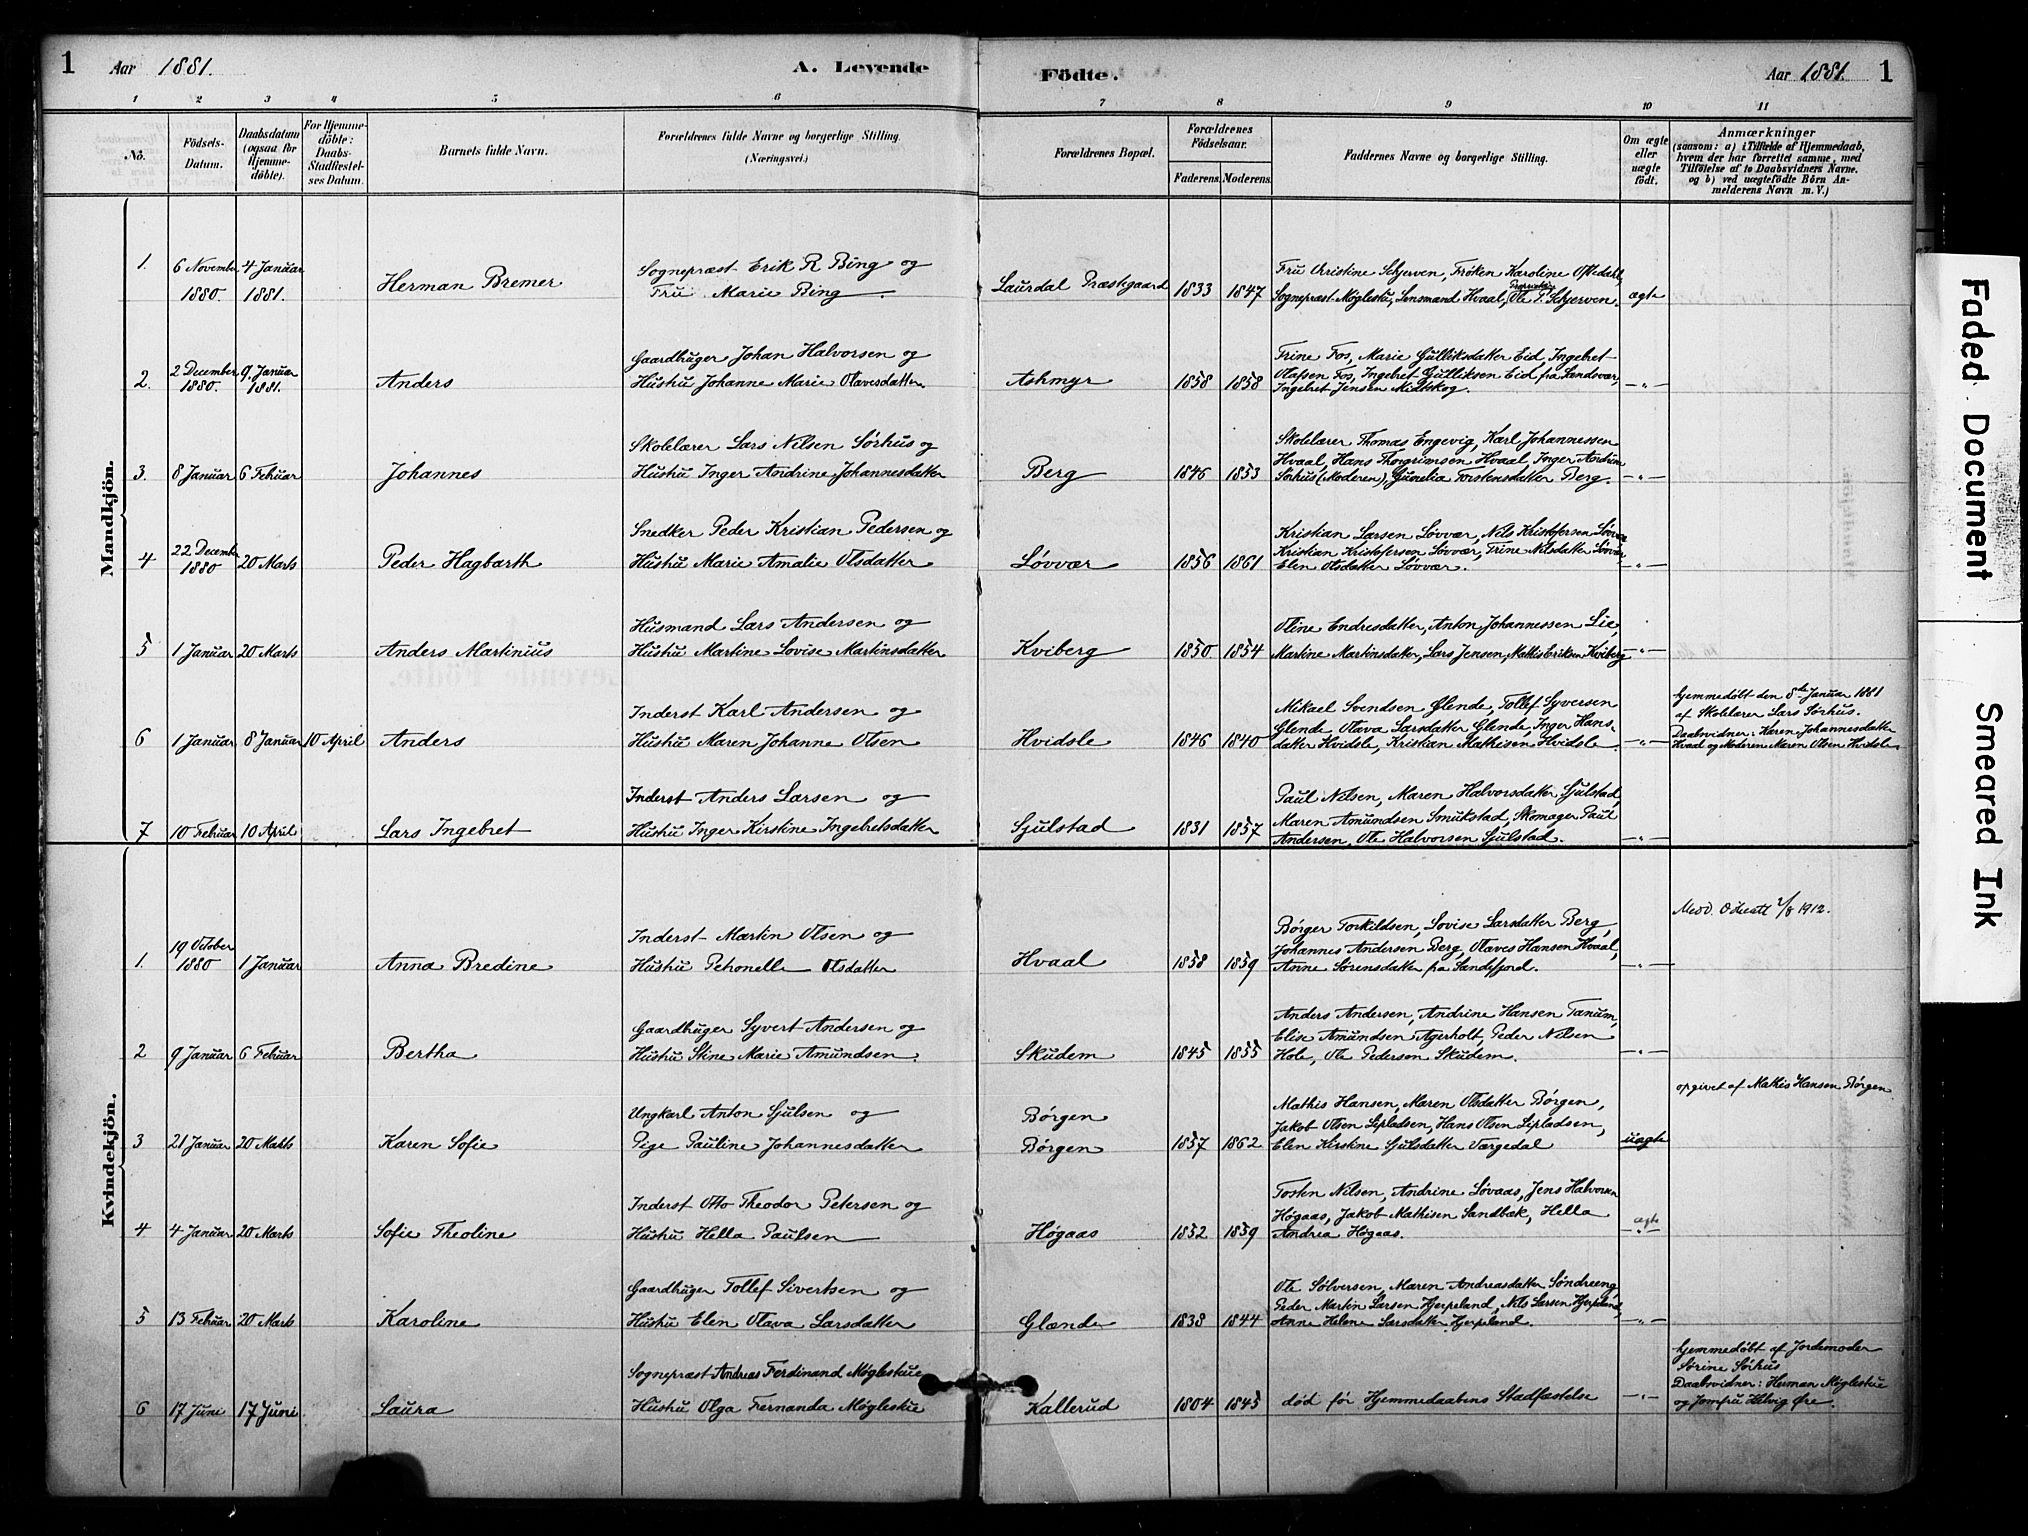 1 Aar 1881. A. Levende Födte. Aar 1881. 1
1 2 3 4 5 6 7 8 9 10 11
No.
Födsels-Datum.
Daabsdatum (ogsaa for Hjemme-döbte).
For Hjemme-döbte: Daabs-Stadfæstel-ses Datum.
Barnets fulde Navn.
Forældrenes fulde Navne og borgerlige Stilling. (Næringsvei.)
Forældrenes Bopæl.
Forældrenes Födselsaar.
Faderens. Moderens.
Faddernes Navne og borgerlige Stilling.
Om ægte eller uægte födt.
Anmærkninger
(saasom: a) i Tilfælde af Hjemmedaab,
hvem der har forrettet samme, med
Tilföielse af to Daabsvidners Navne.
og b) ved uægtefödte Börn An-
melderens Navn m. V.)
Mandkjön.
1. 6 November 1880. 4 Januar 1881. Herman Bremer
Sognepræst Erik R Bing og
Fru Marie Bing
Laurdal Præstegaard 1833 1847
Fru Christine Schjerven, Frøken Karoline Oftedahl,
Sognepræst Møglestu, Lensmand Hvaal, Ole T. Schjerven.
ægte
2. 2 December 1880. 9. Januar 1881. Anders
Gaardbruger Johan Halvorsen og
Hustru Johanne Marie Olavesdatter
Askmyr 1858 1858
Trine Fos, Marie Gulliksdatter Eid, Ingebret
Olafsen Fos, Ingebret Gulliksen Eid fra Sandsvær,
Ingebret Jensen Midtskog.
—"—
3. 8 Januar 6 Februar Johannes
Skolelærer Lars Nilsen Sørhus og
Hustru Inger Andrine Johannesdatter
Berg 1846 1853
Skolelærer Thomas Engevig, Karl Johannessen
Hvaal, Hans Thorgrimsen Hvaal, Inger Andrine
Sørhus (Moderen), Gunelia Torstensdatter Berg.
—"—
4 22 December 1880 20 Marts Peder Hagbarth
Snedker Peder Kristian Pedersen og
Hustru Marie Amalie Olsdatter
Løvvær 1856 1861
Kristian Larsen Løvvær, Nils Kristofersen Løvvær
Kristian Kristofersen Løvvær, Trine Nilsdatter Løvvær,
Elen Olsdatter Løvvær.
—"—
5 1 Januar 20 Marts Anders Martinius
Husmand Lars Andersen og
Hustru Martine Lovise Martinsdatter
Kviberg 1850 1854
Oline Endresdatter, Anton Johannessen Lie,
Martine Martinsdatter, Lars Jensen, Mathis Eriksen Kviberg
—"—
6 1 Januar 8 Januar 10 April Anders
Inderst Karl Andersen og
Hustru Maren Johanne Olsen
Hvidsle 1846 1840
Mikael Svendsen Glende, Tollef Syversen
Glende, Olava Larsdatter Glende, Inger Hans-
datter Hvidsle, Kristian Mathisen Hvidsle.
—"—
hjemmedøbt den 8de Januar 1881
af Skolelærer Lars Sørhus.
Daabsvidner: Karen Johannesdatter
Hvaal og Moderen Maren Olsen Hvidsle
7 10 Februar 10 April Lars Ingebret
Inderst Anders Larsen og
Hustru Inger Kirstine Ingebretsdatter
Sjulstad 1831 1857
Paul Nilsen, Maren Halvorsdatter Sjulstad,
Maren Amundsen Smukstad, Skomager Paul
Andersen, Ole Halvorsen Sjulstad.
—"—
Kvindekjön.
1. 19 October 1880 1 Januar Anna Bredine
Inderst Martin Olsen og
Hustru Petronelle Olsdatter
Hvaal 1858 1859
Børger Torkildsen, Lovise Larsdatter Berg,
Johannes Andersen Berg, Olaves Hansen Hvaal,
Anne Sørensdatter fra Sandefjord.
—"—
1912.
2 9 Januar 6 Februar Bertha
Gaardbruger Syvert Andersen og
Hustru Stine Marie Amundsen.
Skudem 1845 1855
Anders Andersen, Andrine Hansen Tanum,
Elise Amundsen Agerholt, Peder Nilsen
Hole, Ole Pedersen Skudem.
—"—
3 21 Januar 20 Marts Karen Sofie
Ungkarl Anton Sjulsen og
Pige Pauline Johannesdatter
Børgen
Børgen
1857 1862
Mathis Hansen, Maren Olsdatter Børgen,
Jakob Olsen Lipladsen, Hans Olsen Lipladsen,
Elen Kirstine Sjulsdatter Vargedal
uægte
opgivet af Mathis Hansen Børgen
4 4 Januar 20 Marts Sofie Theoline
Inderst Otto Theodor Petersen og
Hustru Hella Paulsen
Høgaas 1852 1859
Tosten Nilsen, Andrine Løvaas, Jens Halvorsen
Høgaas, Jakob Mathisen Sandbæk, Hella
Andrea Høgaas.
ægte
—"—
5 13 Februar 20 Marts Karoline
Gaardbruger Tollef Sivertsen og
Hustru Elen Olava Larsdatter
Glænde 1838 1844
Ole Sølversen, Maren Andreasdatter Søndreeng,
Peder Martin Larsen Hjerpeland, Nils Larsen Hjerpeland,
Anne Helene Larsdatter Hjerpeland.
—"—
6 17 Juni 17 Juni Laura
Sognepræst Andreas Ferdinand Møglestue
Hustru Olga Fernanda Møglestue
Kallerud 1804 1845
død før Hjemmedaabens Stadfæstelse
—"—
hjemmedøbt af Jordemoder
Sørine Sørhus
Daabsvidner: Herman Møglestue
og Jomfru Helvig Øre.
Faded Document
Smeared Ink